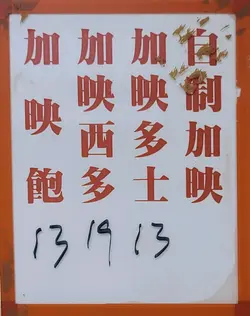 自制加映
加映多士
加映西多
加映飽
13 19 13